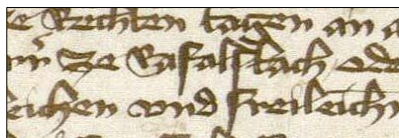 e Rechten tagen an a
ze Safalstach ode
eichen vnd freileichn